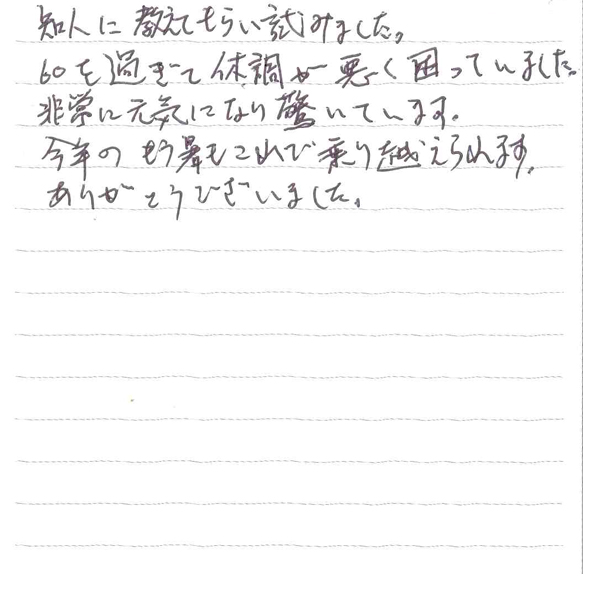 知人に教えてもらい試みました。
60を過ぎて体調が悪く困っていました。
非常に元気になり驚いています。
今年のもう暑もこれで乗り越えられます。
ありがとうございました。